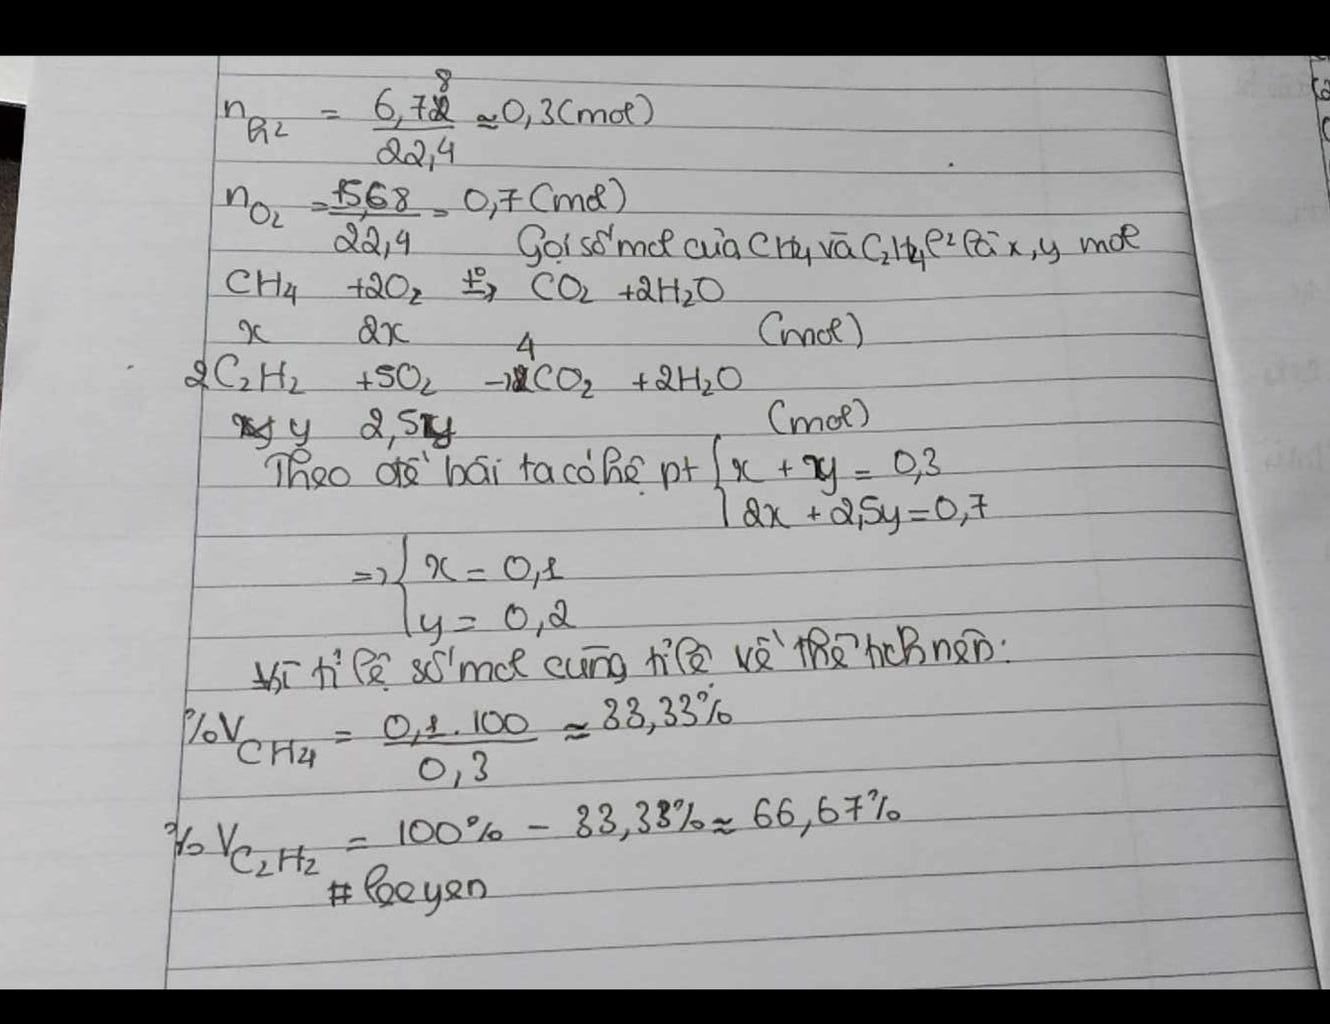 n_h2 = 6,78/22,4 ≈ 0,3 (mol)
n_O2 = 15,68/22,4 = 0,7 (mol)
Gọi số mol của CH4 và C2H4 l² là x, y mol
CH4 + 2O2 t°→ CO2 + 2H2O
x 2x (mol)
2C2H2 + 5O2 → 4CO2 + 2H2O
y 2,5y (mol)
Theo đề bài ta có hệ pt { x + y = 0,3
2x + 2,5y = 0,7
=> { x = 0,1
y = 0,2
Vì tỉ lệ số mol cũng tỉ lệ về thể tích nên:
%V_CH4 = 0,1.100/0,3 ≈ 33,33%
%V_C2H2 = 100% - 33,33% ≈ 66,67%
#leeyen